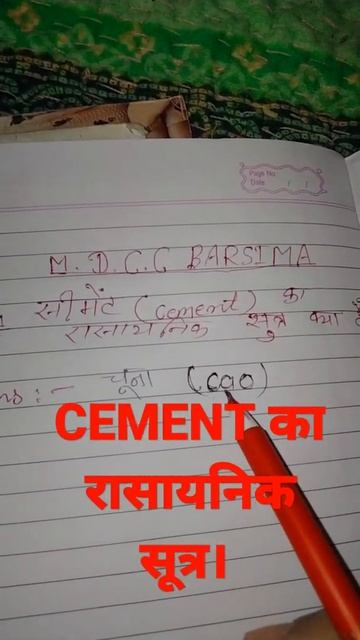 Page No
Date
M.D.C.C BARSIMA
सीमेंट (cement) का
रासायनिक सुत्र क्या
Ans :- चूना (cao)
CEMENT का
रासायनिक
सूत्र।